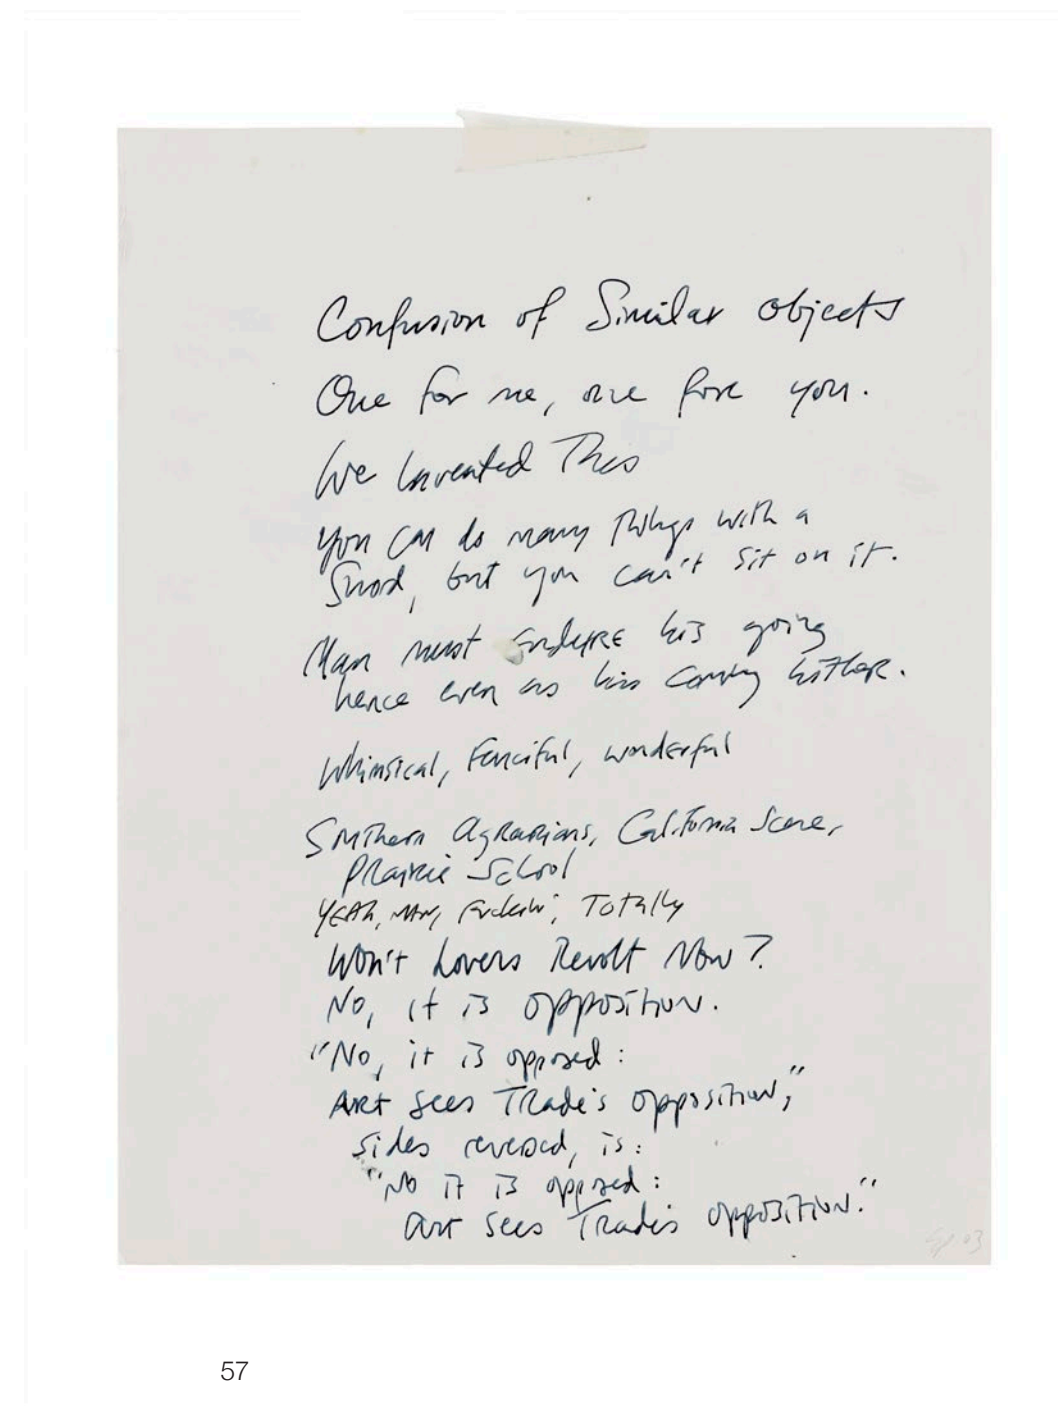 Confusion of Similar Objects
One for me, one for you.
We Invented This
You can do many things with a
Sword, but you can't sit on it.
Man must EndURE his going
hence even as his coming hither.
Whimsical, Fanciful, wonderful
Southern AgRaRians, California Scene,
PRairie School
YEAh, MAN, Totally
Won't Lovers Revolt Now?
No, it is opposition.
"No, it is opposed:
ARt sees TRade's opposition,"
sides reversed, is:
"No it is opposed:
Art sees Trade's opposition."
57